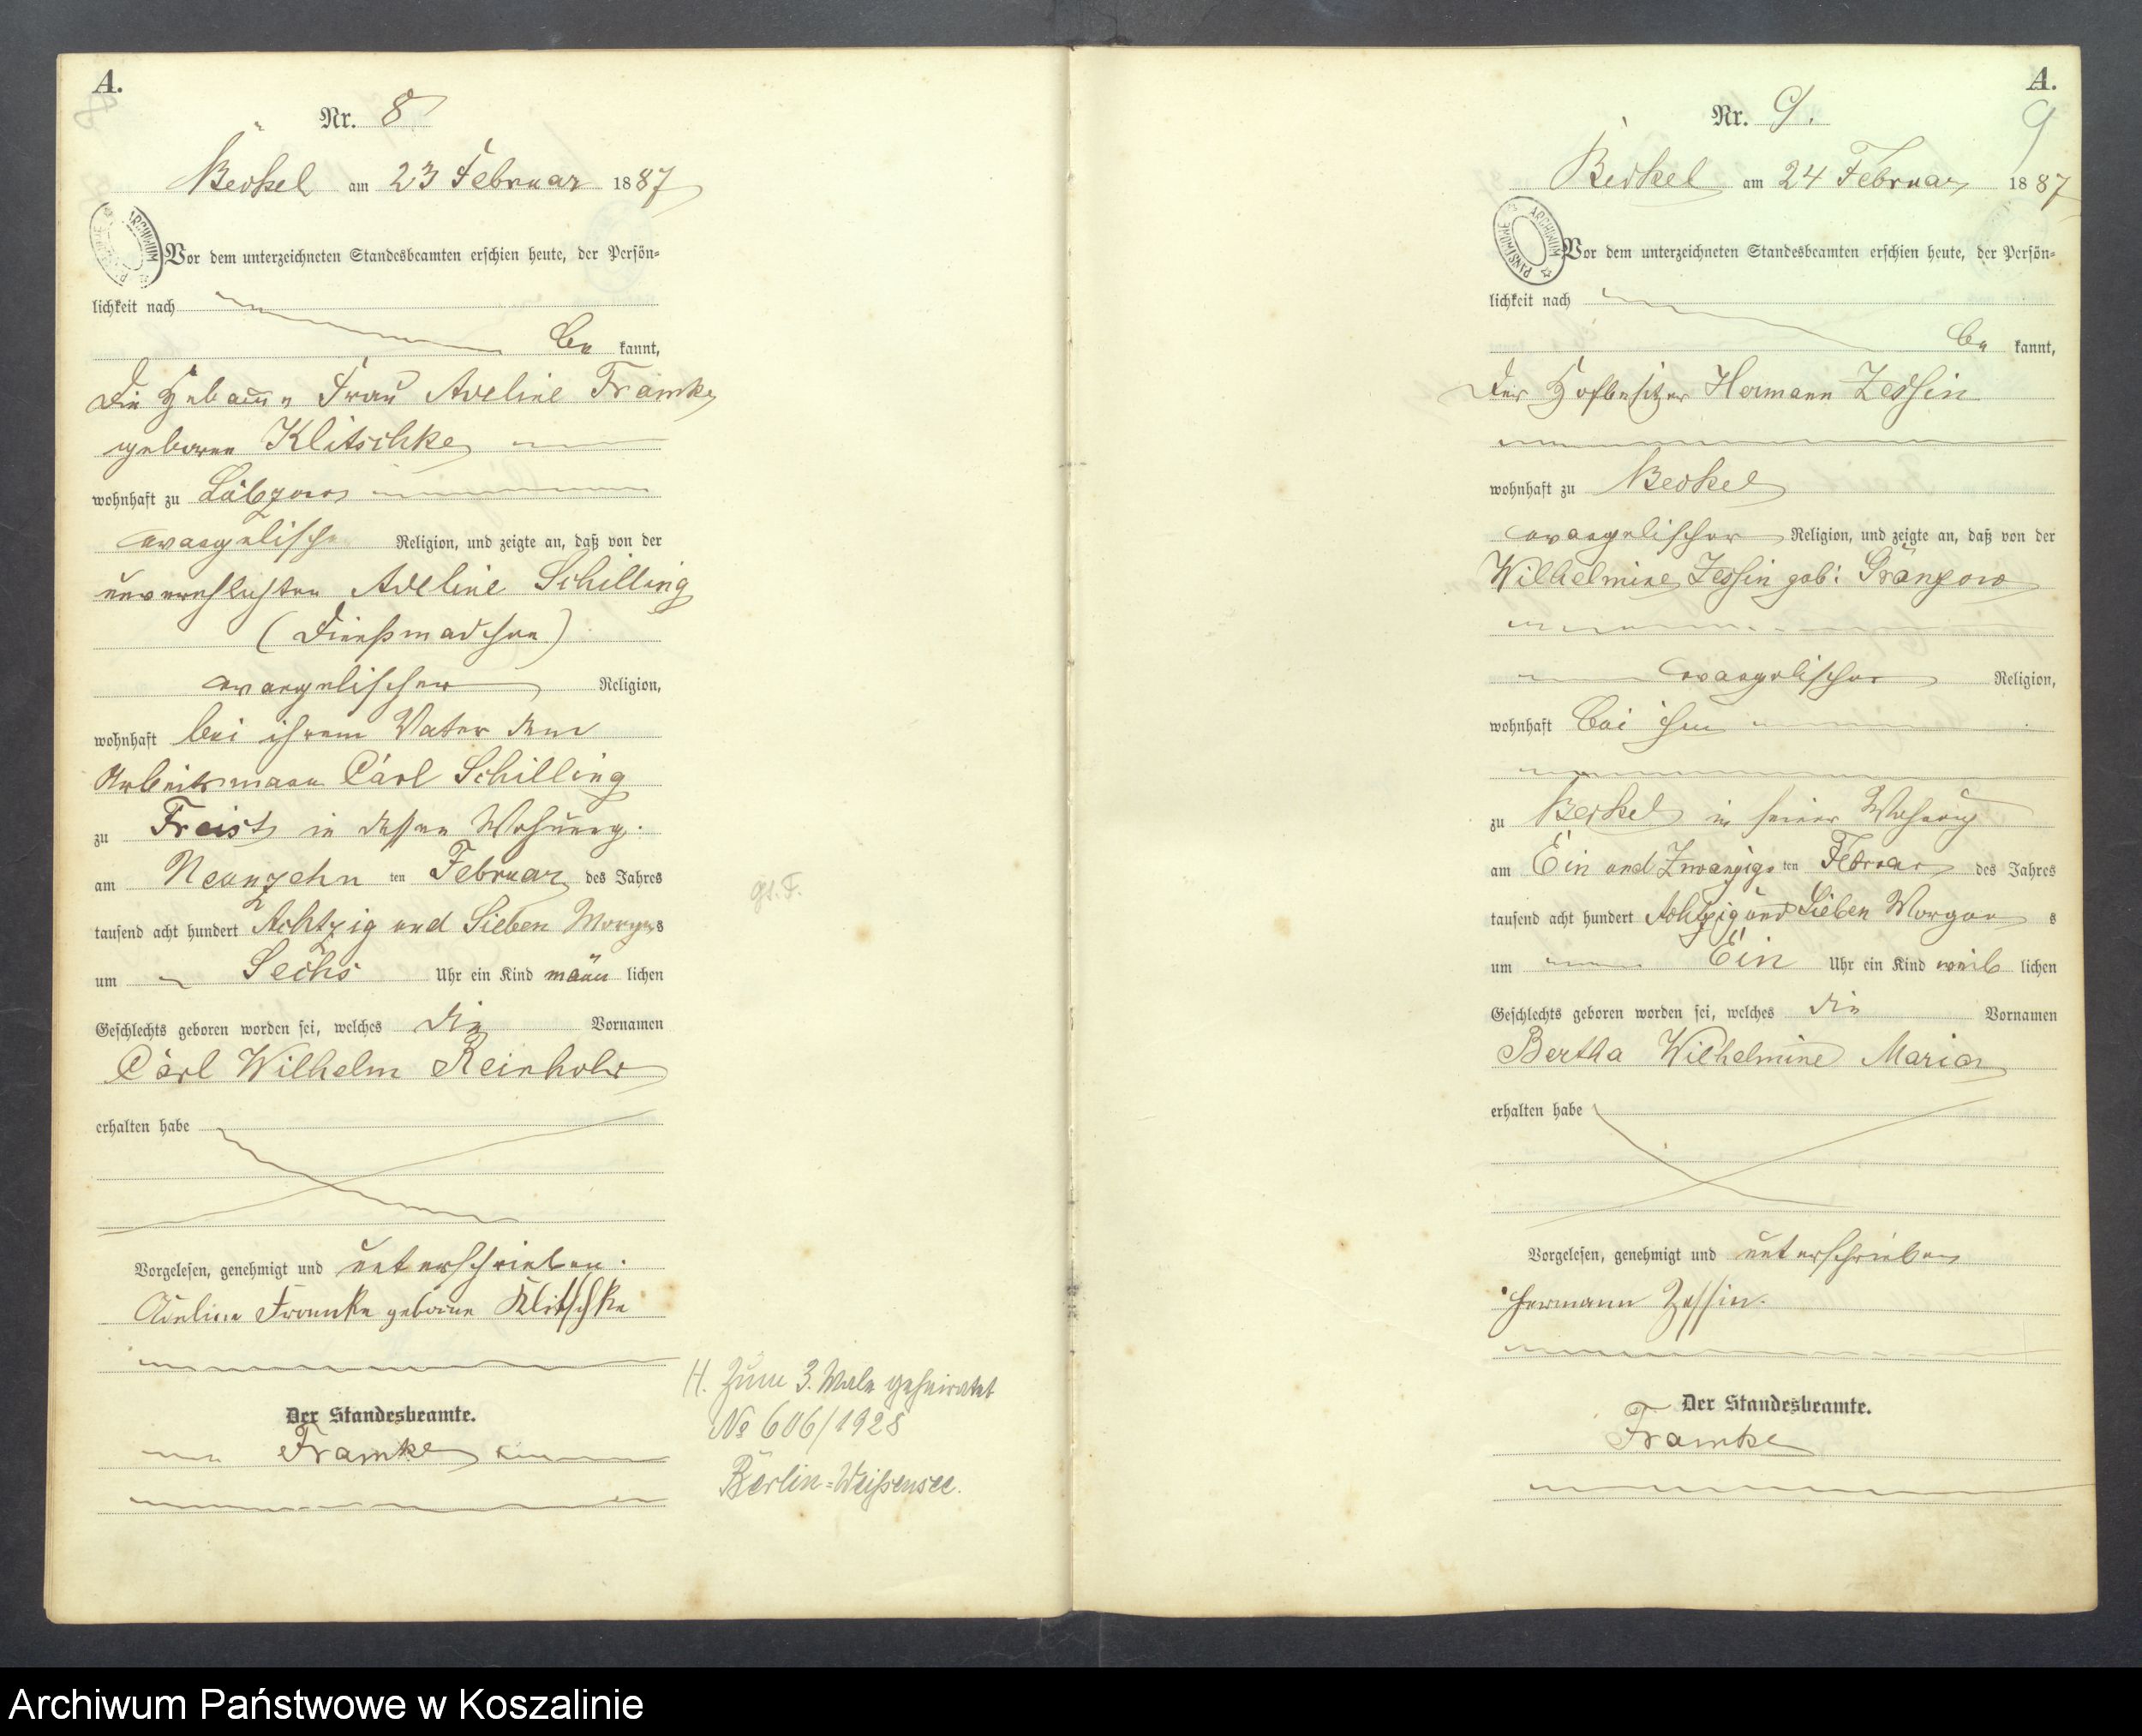 A.
Nr. 8
Beckel am 23 Februar 1887
ARCHIWUM
Vor dem unterzeichneten Standesbeamten erschien heute, der Persön-
lichkeit nach
be kannt,
die Hebamme Frau Adeline Framke
geborene Klitschke
wohnhaft zu
evangelischer Religion, und zeigte an, daß von der
unverehlichten Adeline Schilling
(Dienstmädchen)
evangelischer Religion,
wohnhaft bei ihrem Vater dem
Arbeitsmann Carl Schilling
zu Freist in dessen Wohnung.
am Neunzehn ten Februar des Jahres
tausend acht hundert Achtzig und Sieben Morgens
um Sechs Uhr ein Kind männ lichen
Geschlechts geboren worden sei, welches die Vornamen
Carl Wilhelm Reinhold
erhalten habe
Vorgelesen, genehmigt und unterschrieben.
Adeline Framke geborne Klitschke
Der Standesbeamte.
Framke
gs. F.
H. Zum 3. Male geheiratet
No 606/1928
Berlin-Weißensee.
A.
9
Nr. 9.
Beckel am 24 Februar 1887
ARCHIWUM PAŃSTWOWE
Vor dem unterzeichneten Standesbeamten erschien heute, der Persön-
lichkeit nach
be kannt,
der Hofbesitzer Hermann Zessin
wohnhaft zu Beckel
evangelischer Religion, und zeigte an, daß von der
Wilhelmine Zessin geb:
evangelischer Religion,
wohnhaft bei ihm
zu Beckel in seiner Wohnung
am Ein und Zwanzigs ten Februar des Jahres
tausend acht hundert Achtzig und Sieben Morgen s
um Ein Uhr ein Kind weib lichen
Geschlechts geboren worden sei, welches die Vornamen
Bertha Wilhelmine Maria
erhalten habe
Vorgelesen, genehmigt und unterschrieben
Hermann Zessin.
Der Standesbeamte.
Framke
Archiwum Państwowe w Koszalinie